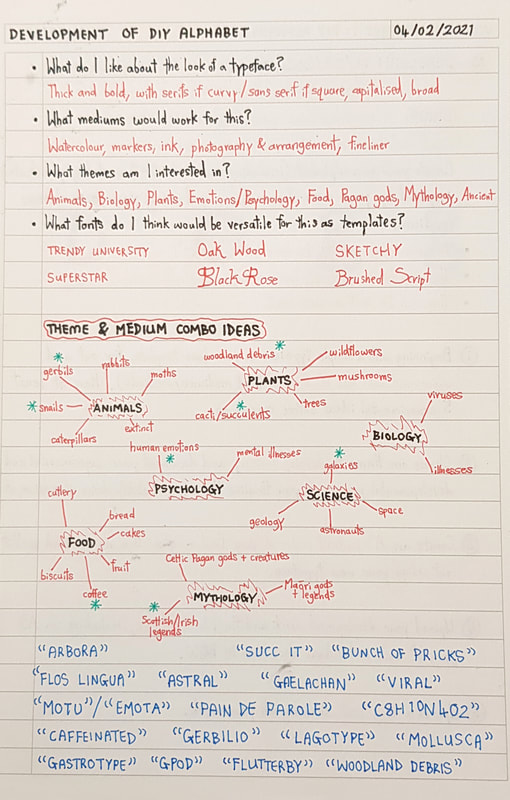 DEVELOPMENT OF DIY ALPHABET
04/02/2021
• What do I like about the look of a typeface?
Thick and bold, with serifs if curvy/sans serif if square, capitalised, broad
• What mediums would work for this?
Watercolour, markers, ink, photography & arrangement, fineliner
• What themes am I interested in?
Animals, Biology, Plants, Emotions/Psychology, Food, Pagan gods, Mythology, Ancient
• What fonts do I think would be versatile for this as templates?
TRENDY UNIVERSITY Oak Wood SKETCHY
SUPERSTAR Black Rose Brushed Script
THEME & MEDIUM COMBO IDEAS
gerbils
rabbits
moths
snails
ANIMALS
caterpillars
extinct
woodland debris
wildflowers
PLANTS
mushrooms
cacti/succulents
trees
viruses
BIOLOGY
illnesses
human emotions
mental illnesses
PSYCHOLOGY
galaxies
SCIENCE
geology
astronauts
space
cutlery
bread
FOOD
cakes
biscuits
fruit
coffee
Celtic Pagan gods + creatures
MYTHOLOGY
Maori gods
+ legends
Scottish/Irish
legends
"ARBORA" "SUCC IT" "BUNCH OF PRICKS"
"FLOS LINGUA" "ASTRAL" "GAELACHAN" "VIRAL"
"MOTU"/"EMOTA" "PAIN DE PAROLE" "C8H10N4O2"
"CAFFEINATED" "GERBILIO" "LAGOTYPE" "MOLLUSCA"
"GASTROTYPE" "GPOD" "FLUTTERBY" "WOODLAND DEBRIS"